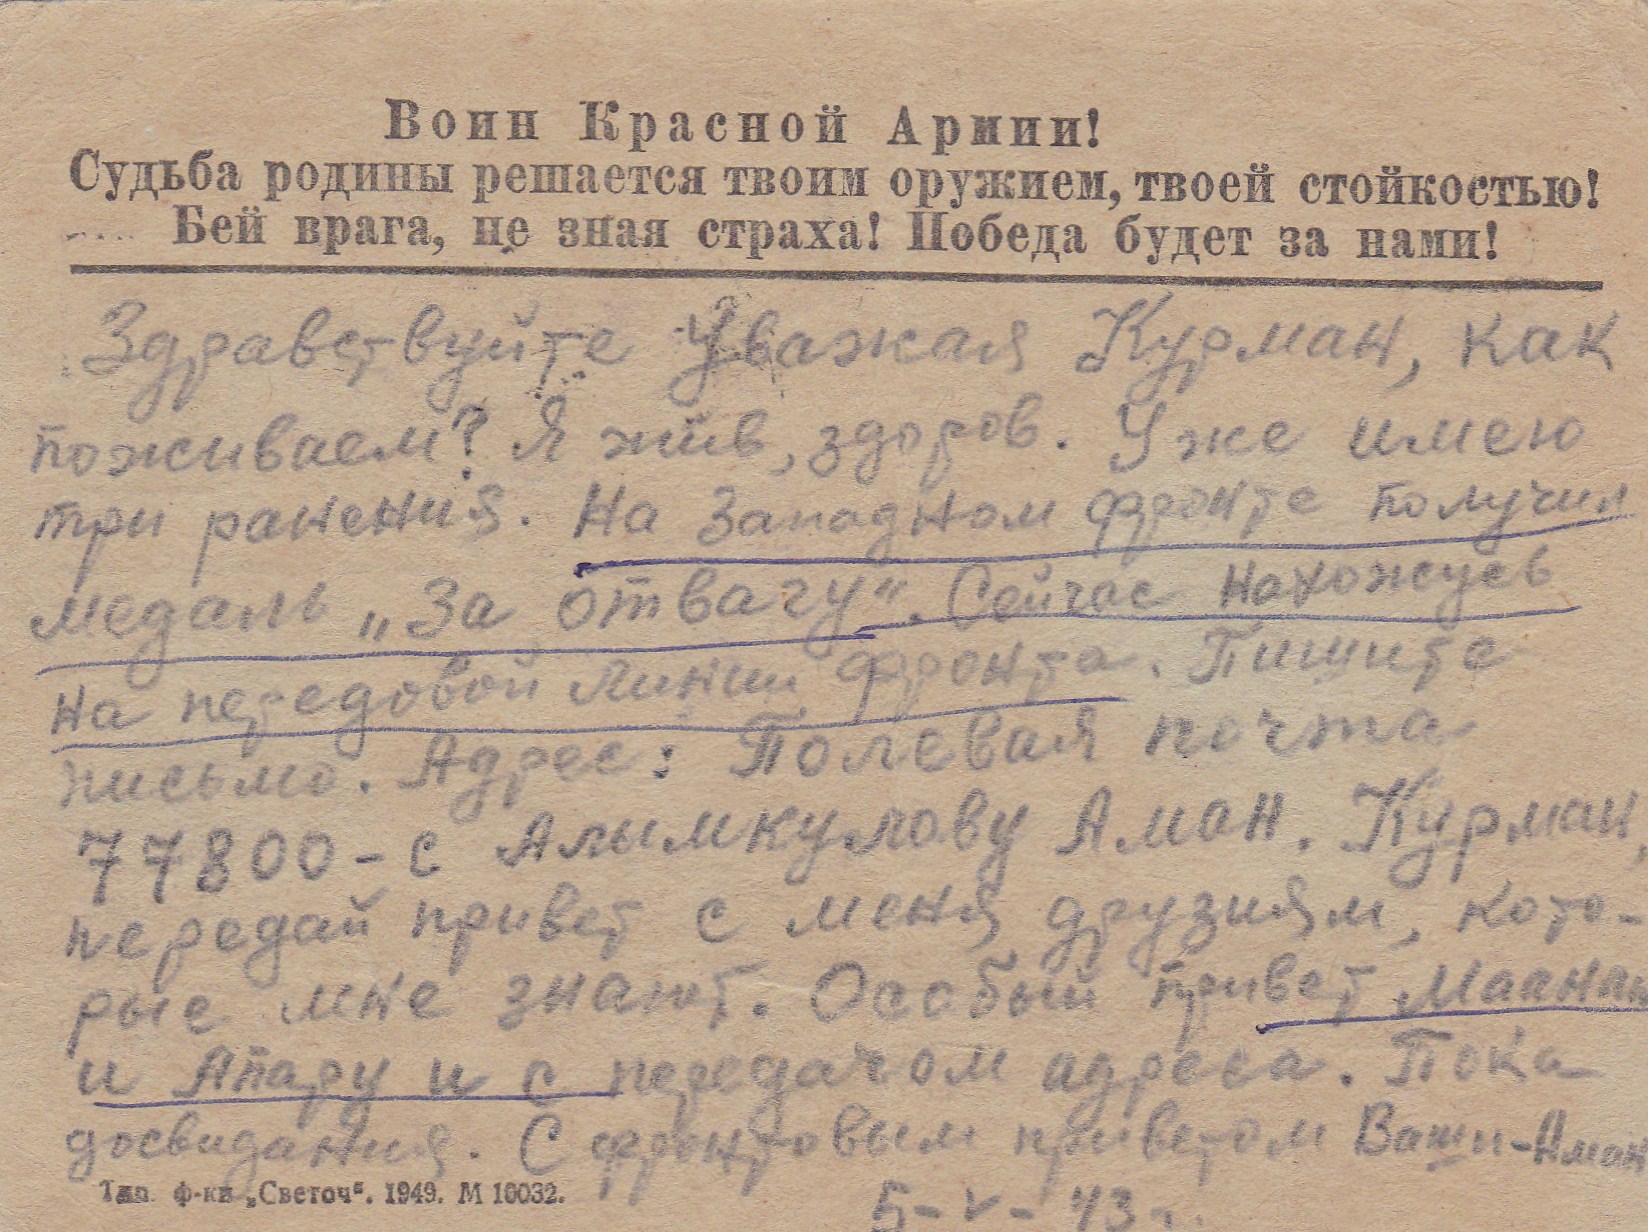 Воин Красной Армии!
Судьба родины решается твоим оружием, твоей стойкостью!
Бей врага, не зная страха! Победа будет за нами!
Здравствуйте Уважая Курман, как
поживаем? Я жив, здоров. Уже имею
три ранения. На Западном фронте получил
медаль „За отвагу“. Сейчас нахожусь
на передовой линии фронта. Пишите
письмо. Адрес: Полевая почта
77800-с Алымкулову Аман. Курман,
передай привет с меня друзиям, кото-
рые мне знают. Особый привет
и Апару и с передачом адреса. Пока
досвидания. С фронтовым приветом Ваши-Аман
5-V-43.
Тип. ф-ки „Светоч“. 1949. М 10032.